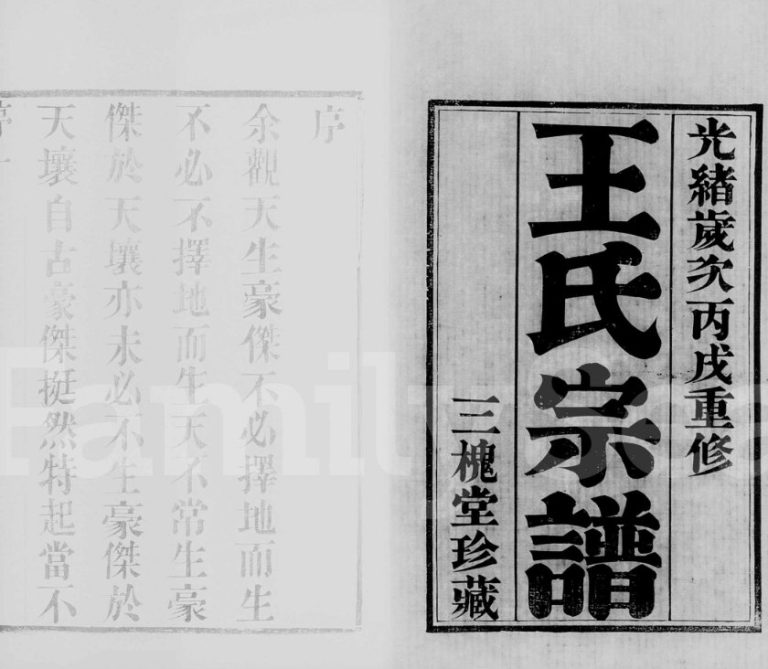 光緒歲次丙戌重修
王氏宗譜
三槐堂珍藏
序
余觀天生豪傑不必擇地而生
不必不擇地而生天不常生豪
傑於天壤亦未必不生豪傑於
天壤自古豪傑挺然特起當不